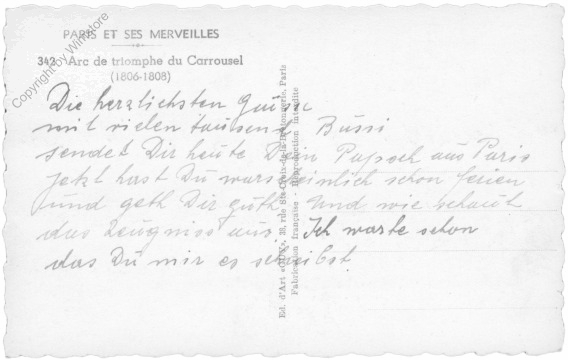 PARIS ET SES MERVEILLES
342 Arc de triomphe du Carrousel
(1806-1808)
Copyright by Winstore
Die herzlichsten
mit vielen tausend Bussi
sendet Dir heute Dein aus Paris
jetzt hast Du warscheinlich schon ferien
und geth Dir guth und wie schaut
das Zeugniss aus. Ich warte schon
das Du mir es schreibst
Ed. d'Art 38, rue Ste-Croix-de-la-Bretonnerie, Paris
Fabrication française - Reproduction interdite